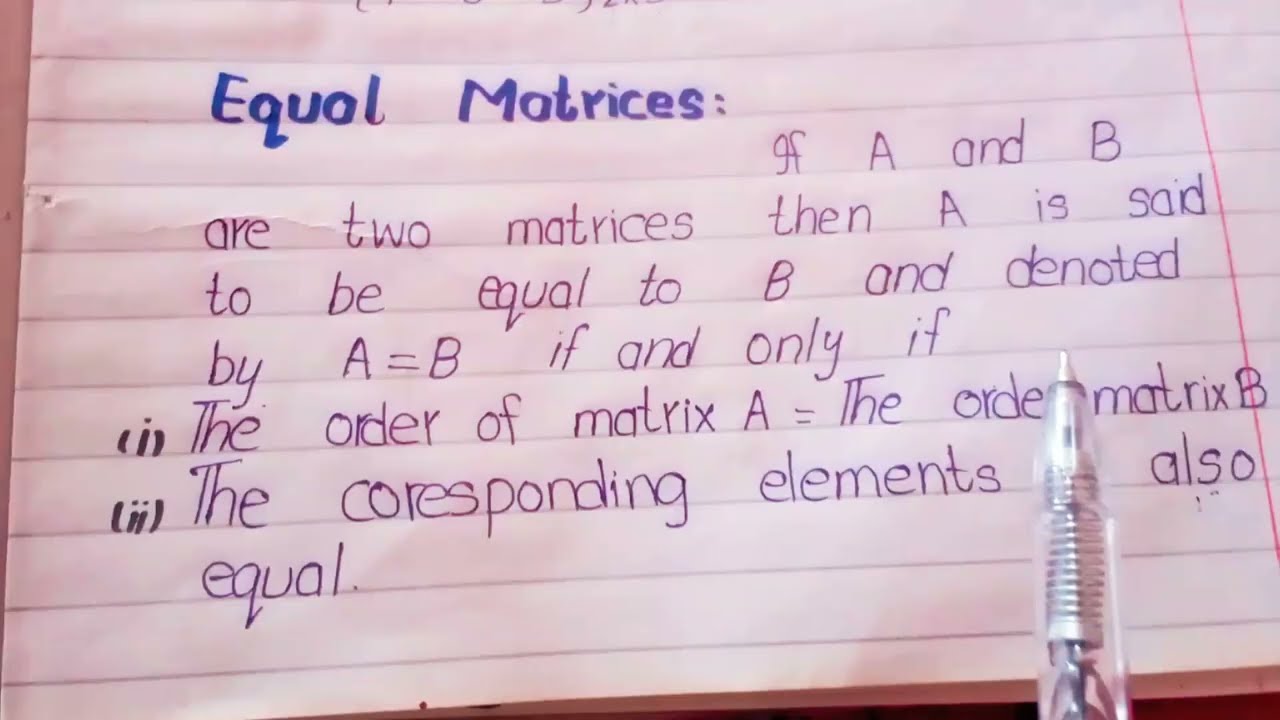 Equal Matrices:
If A and B
are two matrices then A is said
to be equal to B and denoted
by A = B if and only if
(i) The order of matrix A = The orde matrix B
(ii) The coresponding elements also
equal.